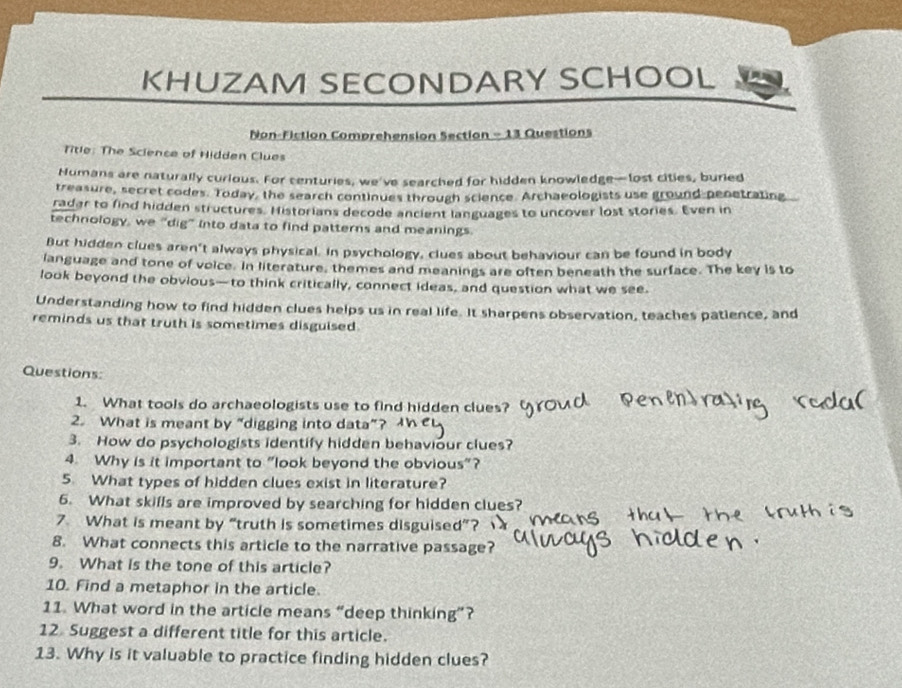 KHUZAM SECONDARY SCHOOL
Non-Fiction Comprehension Section - 13 Questions
Title: The Science of Hidden Clues
Humans are naturally curious. For centuries, we've searched for hidden knowledge—lost cities, buried
treasure, secret codes. Today, the search continues through science. Archaeologists use ground-penetrating
radar to find hidden structures. Historians decode ancient languages to uncover lost stories. Even in
technology, we "dig" into data to find patterns and meanings.
But hidden clues aren't always physical. In psychology, clues about behaviour can be found in body
language and tone of voice. In literature, themes and meanings are often beneath the surface. The key is to
look beyond the obvious—to think critically, connect ideas, and question what we see.
Understanding how to find hidden clues helps us in real life. It sharpens observation, teaches patience, and
reminds us that truth is sometimes disguised.
Questions:
1. What tools do archaeologists use to find hidden clues? groud penentrating radar
2. What is meant by "digging into data"? they
3. How do psychologists identify hidden behaviour clues?
4. Why is it important to "look beyond the obvious"?
5. What types of hidden clues exist in literature?
6. What skills are improved by searching for hidden clues?
7. What is meant by "truth is sometimes disguised"? it means that the truth is
always hidden.
8. What connects this article to the narrative passage?
9. What is the tone of this article?
10. Find a metaphor in the article.
11. What word in the article means "deep thinking"?
12. Suggest a different title for this article.
13. Why is it valuable to practice finding hidden clues?